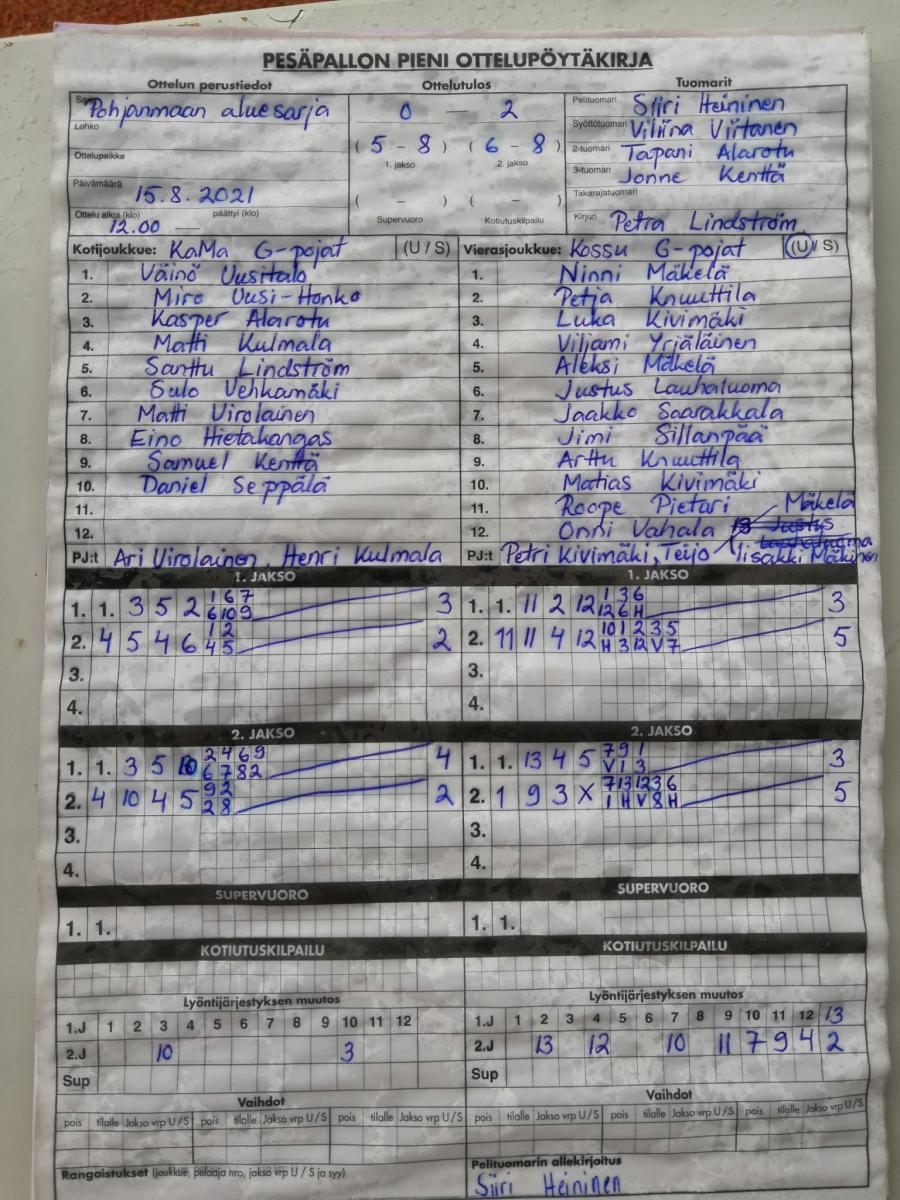 PESÄPALLON PIENI OTTELUPÖYTÄKIRJA
Ottelun perustiedot Ottelutulos Tuomarit
Sarja Pohjanmaan aluesarja 0 – 2 Pelituomari Siiri Heininen
Lohko Syöttötuomari Viliina Virtanen
Ottelupaikka (5 – 8) (6 – 8) 2-tuomari Tapani Alarotu
1. jakso 2. jakso 3-tuomari Jonne Kenttä
Päivämäärä 15.8.2021 ( – ) ( – ) Takarajatuomari
Ottelu alkoi (klo) 12.00 päättyi (klo) — Supervuoro Kotiutuskilpailu Kirjuri Petra Lindström
Kotijoukkue: KaMa G-pojat (U / S) Vierasjoukkue: Kossu G-pojat (U / S)
1. Väinö Uusitalo 1. Ninni Mäkelä
2. Miro Uusi-Honko 2. Petja Knuuttila
3. Kasper Alarotu 3. Luka Kivimäki
4. Matti Kulmala 4. Viljami Yrjäläinen
5. Santtu Lindström 5. Aleksi Mäkelä
6. Sulo Vehkamäki 6. Justus Lauhaluoma
7. Matti Virolainen 7. Jaakko Saarakkala
8. Eino Hietakangas 8. Jimi Sillanpää
9. Samuel Kenttä 9. Arttu Knuuttila
10. Daniel Seppälä 10. Matias Kivimäki
11. 11. Roope Pietari Mäkelä
12. 12. Onni Vahala 13 Justus Lauhaluoma
PJ:t Ari Virolainen, Henri Kulmala PJ:t Petri Kivimäki, Teijo Iisakki Mäkinen
1. JAKSO 1. JAKSO
1. 1. 3 5 2 1 6 7 3 1. 1. 11 2 12 1 3 6 3
6 10 9 12 6 H
2. 4 5 4 6 1 2 2 2. 11 11 4 12 10 1 2 3 5 5
4 5 H 3 12 V 7
3. 3.
4. 4.
2. JAKSO 2. JAKSO
1. 1. 3 5 10 2 4 6 9 4 1. 1. 13 4 5 7 9 1 3
6 7 8 2 V 1 3
2. 4 10 4 5 9 2 2 2. 1 9 3 X 7 13 12 3 6 5
2 8 1 H V 8 H
3. 3.
4. 4.
SUPERVUORO SUPERVUORO
1. 1. 1. 1.
KOTIUTUSKILPAILU KOTIUTUSKILPAILU
Lyöntijärjestyksen muutos Lyöntijärjestyksen muutos
1.J 1 2 3 4 5 6 7 8 9 10 11 12 1.J 1 2 3 4 5 6 7 8 9 10 11 12 13
2.J 10 3 2.J 13 12 10 11 7 9 4 2
Sup Sup
Vaihdot Vaihdot
pois tilalle Jakso vrp U/S pois tilalle Jakso vrp U/S pois tilalle Jakso vrp U/S pois tilalle Jakso vrp U/S pois tilalle Jakso vrp U/S pois tilalle Jakso vrp U/S
Rangaistukset (joukkue, pelaaja nro, jakso vrp U / S ja syy) Pelituomarin allekirjoitus
Siiri Heininen